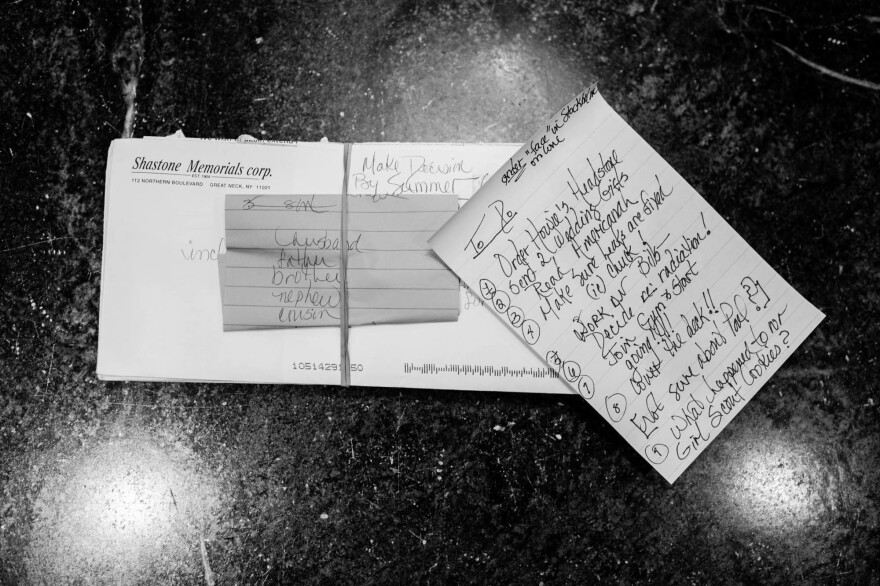 Shastone Memorials corp.
EST. 1904
112 NORTHERN BOULEVARD GREAT NECK, NY 11021
Make Decision
By Summer
son
husband
father
brother
nephew
cousin
1051429 50
order "face" in Stockholm
on line
To Do
① Order Howie's Headstone
② Send 2 Wedding Gifts
③ Read Americanah
④ Make sure meds are filed
(ie) chubb!
⑤ Work on Bills
⑥ Decide re: radiation!
⑦ Join Gym & start
going!!
⑧ Paint the deck!!
[Not sure about Pool?]
⑨ What happened to our
Girl Scout Cookies?